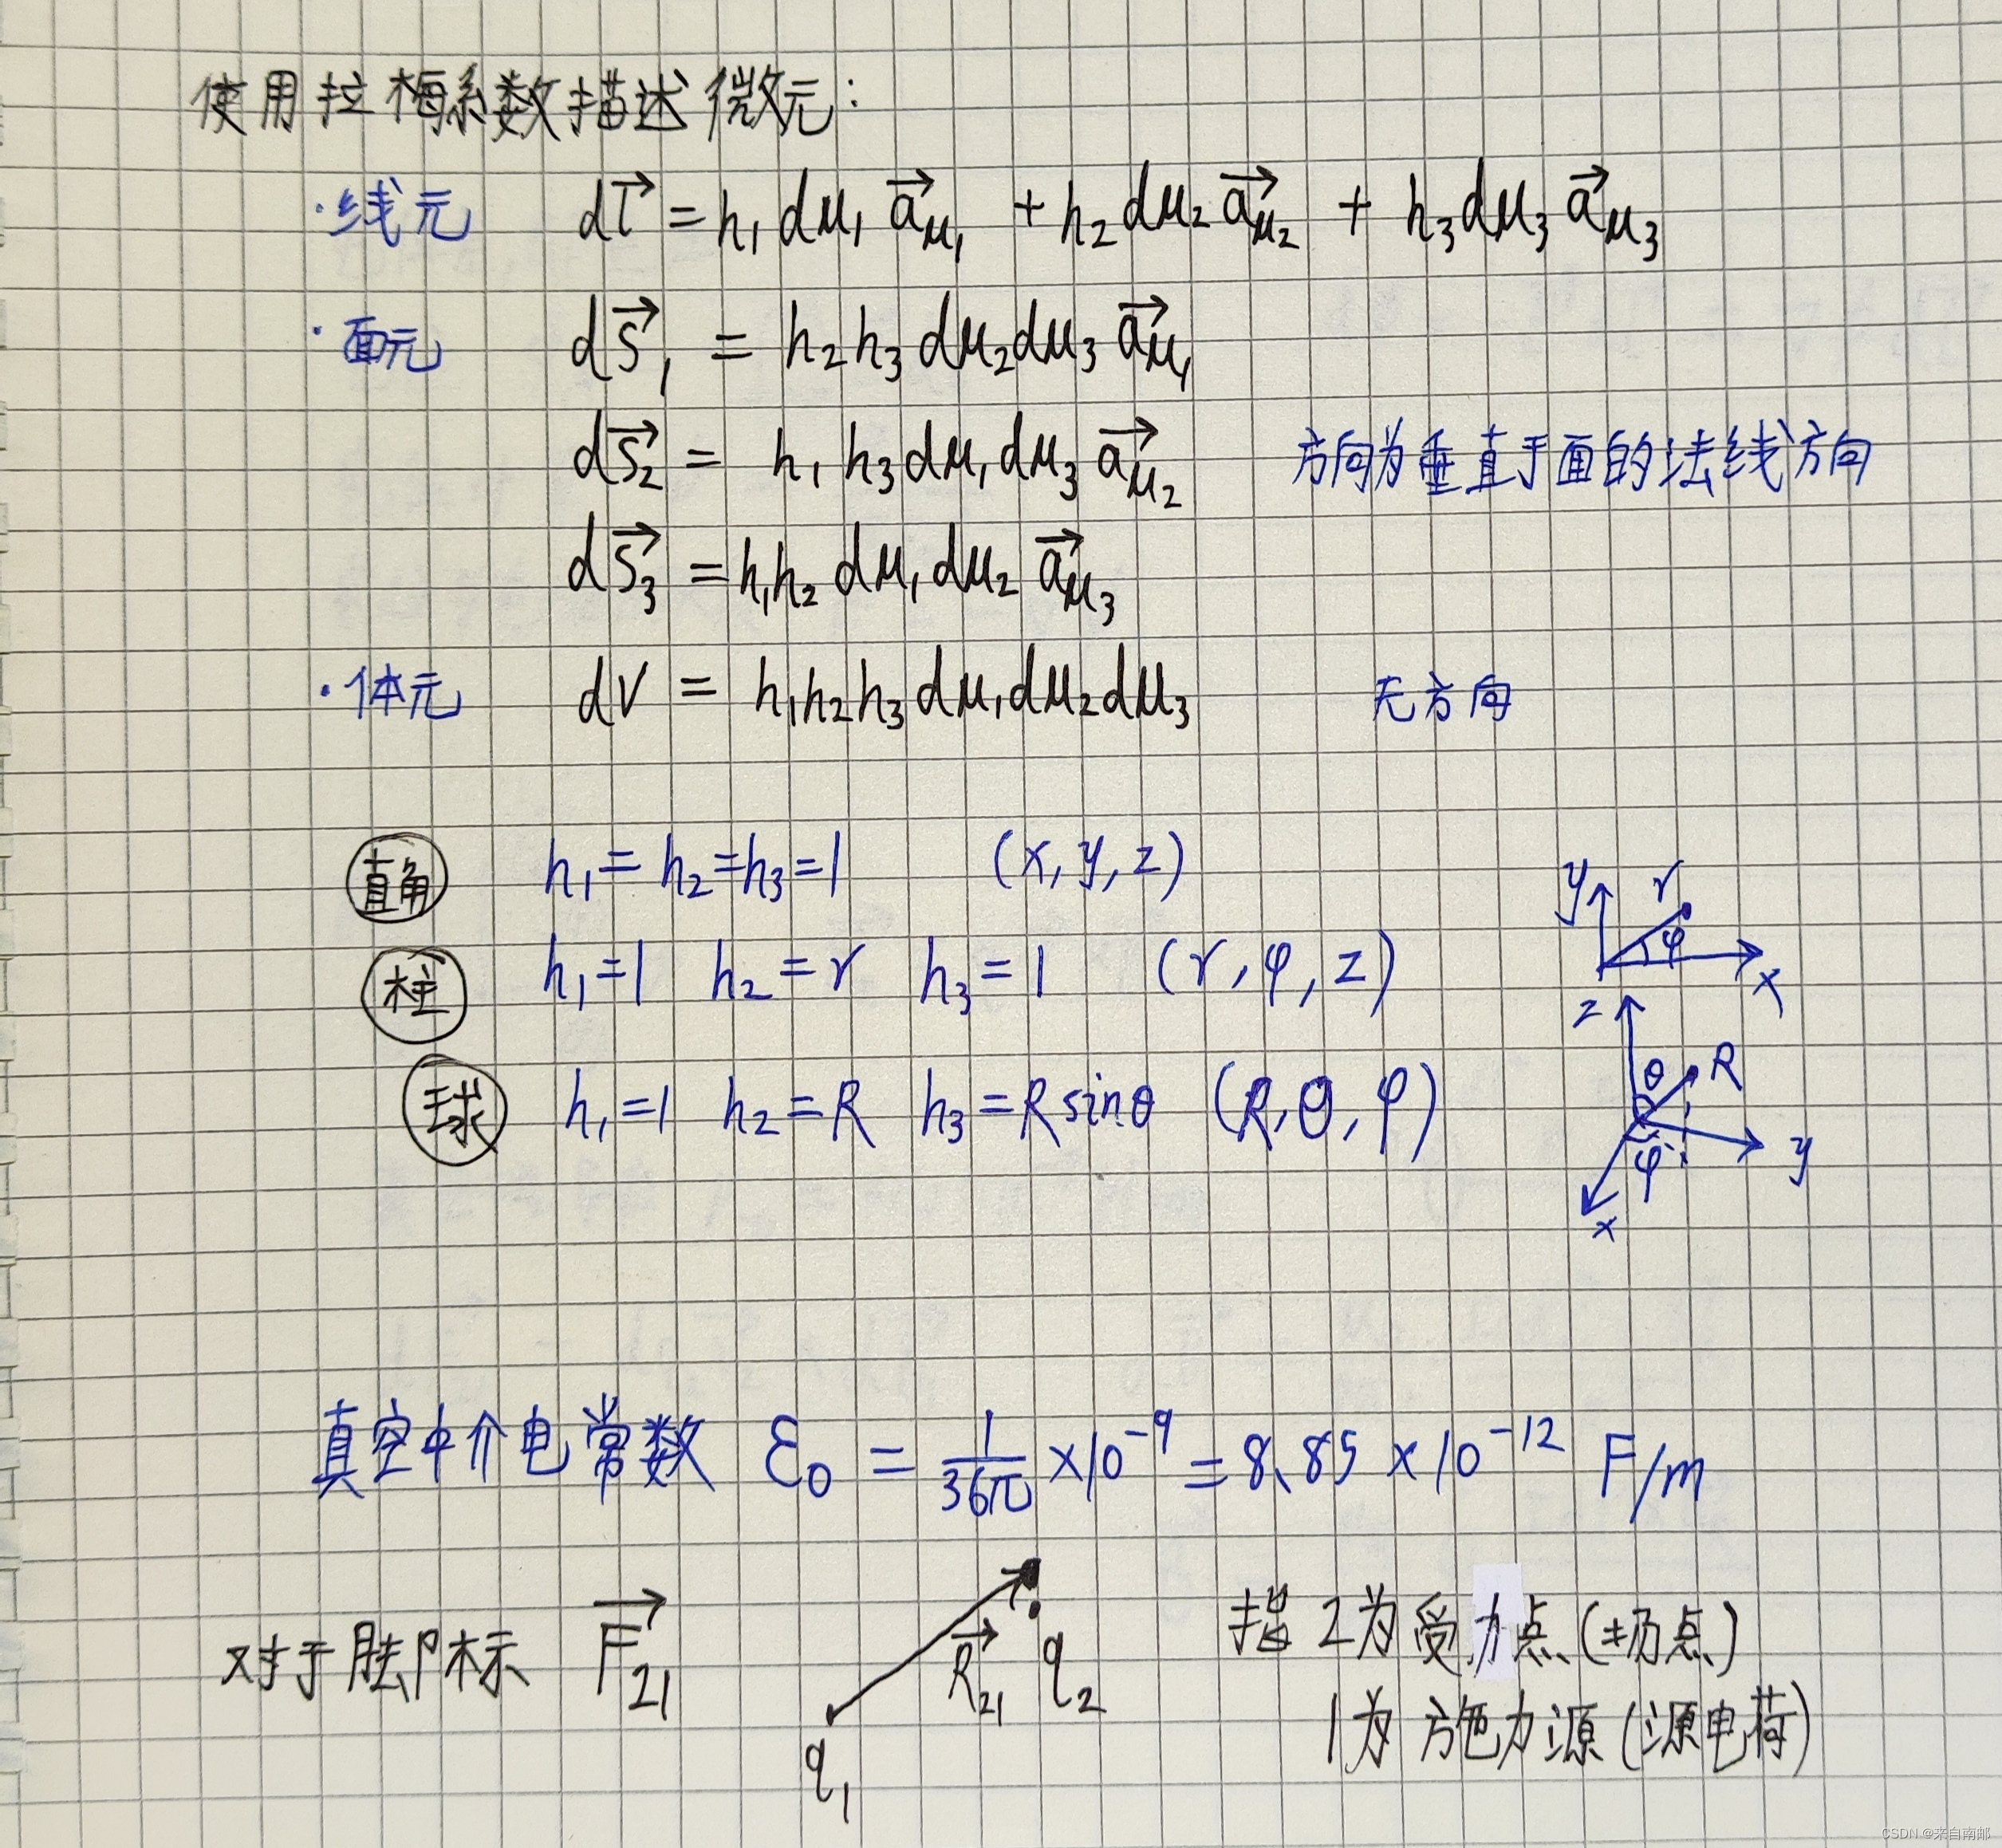 使用拉梅系数描述微元：
·线元 dl⃗ = h₁dμ₁a⃗μ₁ + h₂dμ₂a⃗μ₂ + h₃dμ₃a⃗μ₃
·面元 dS⃗₁ = h₂h₃dμ₂dμ₃a⃗μ₁
dS⃗₂ = h₁h₃dμ₁dμ₃a⃗μ₂ 方向为垂直于面的法线方向
dS⃗₃ = h₁h₂dμ₁dμ₂a⃗μ₃
·体元 dV = h₁h₂h₃dμ₁dμ₂dμ₃ 无方向
直角 h₁=h₂=h₃=1 (x,y,z)
y r φ x
柱 h₁=1 h₂=r h₃=1 (r,φ,z)
球 h₁=1 h₂=R h₃=Rsinθ (R,θ,φ)
z θ R φ y x
真空中介电常数 ε₀ = 1/36π ×10⁻⁹ = 8.85×10⁻¹² F/m
对于脚标 F⃗₂₁ R⃗₂₁ q₂ 指2为受力点(场点)
q₁ 1为施力源(源电荷)
CSDN @来自南邮